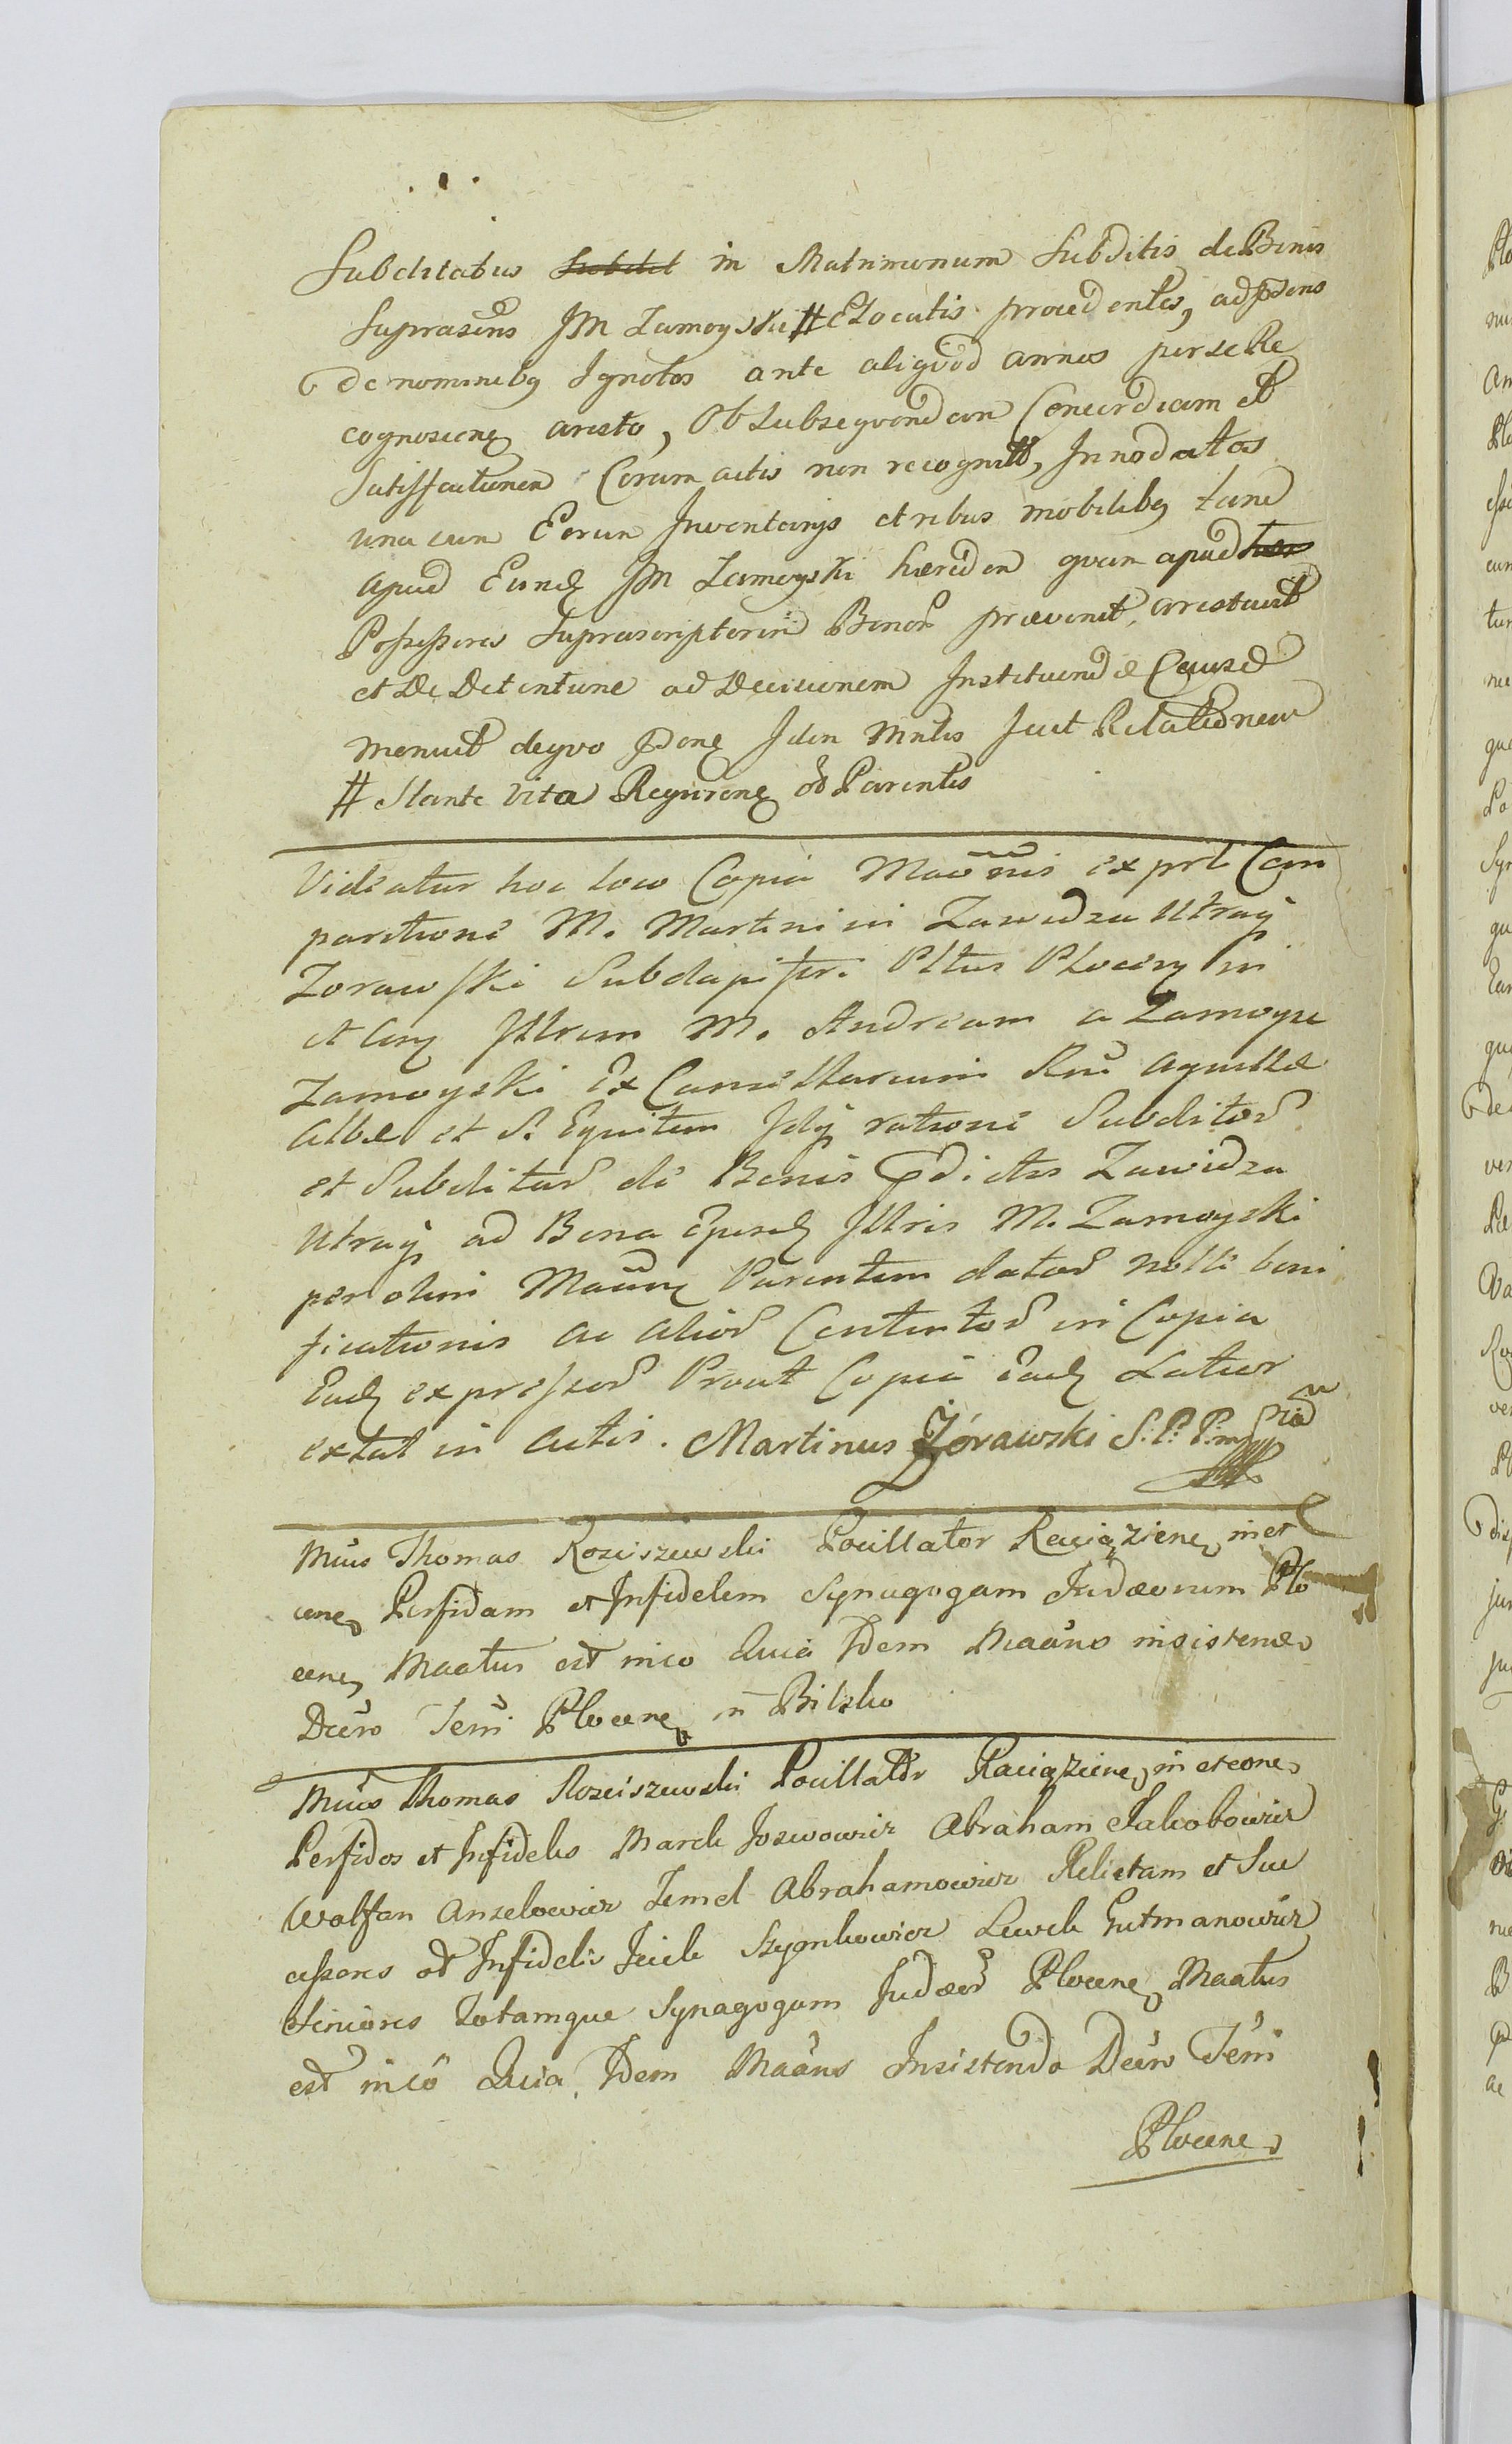 Subditabus in Matrimonium Subditis de Bonis
Suprascris JM Zamoyski # Elocatis procedentes, ad pdens
de nominibq Ignotos ante aliqvod annos per se Re
cognoscenq aresto, Ob Subsequendam Concordiam et
Satisfactionem Coram actis non recognitt, Innodatos
una cum Eorum Inventarijs et rebus mobilibq tam
apud Eundq JM Zamoyski hæredem qvam apud hær
Possessores Suprascriptorum Bonor prævenit, arestavit
et De Detentione ad Decisionem Instituendæ Causæ
monuit deqvo Idem Mntis fecit Relationem
# Stante vita Reqvirenq ad Parentis
Videatur hoc loco Copia Maõnis ex prt Com
paritione M. Martini in Zawidza Utraq
Zorawski Subdapifri Pltus Plocenq in
et conq Illrem M. Andream a Zamoysc
Zamoyski Ex Cancellarium Rni Aquillæ
Albæ et S. Equitem Idq ratione Subditor
et Subditar de Bonis pdictis Zawidza
Utraq ad Bona Ejusdq Illris M. Zamoyski
per olim Maãnq Parentem dator nolle boni
ficationis ac alior Contentor in Copia
Eadq expressor Prout Copia Eadq Latior
extat in Actis. Martinus Żórawski S. P. P. mppria
Mcus Thomas Rosciszewski Pocillator Raciąziene, in et
cone, Perfidam et Infidelem Synagogam Judæorum Plo
cene, Maatus est in eo Quia Idem Maãns insistende
Dcero Terri Plocene, in Bilsko
Mcus Thomas Rosciszewski Pocillator Raciąziene, in et cone,
Perfidos et Infideles Marek Joswowicz Abraham Jakobowicz
Wolfan Anzelowicz Zemel Abrahamowicz Relictam et Suc
cessores olt Infidelis Jcick Szymkowicz Lewek Gutmanowicz
Seniores Totamque Synagogam Judæor Plocene, Maatus
est in eo Quia Idem Maãns Insistendo Dcero Terri
Plocene,